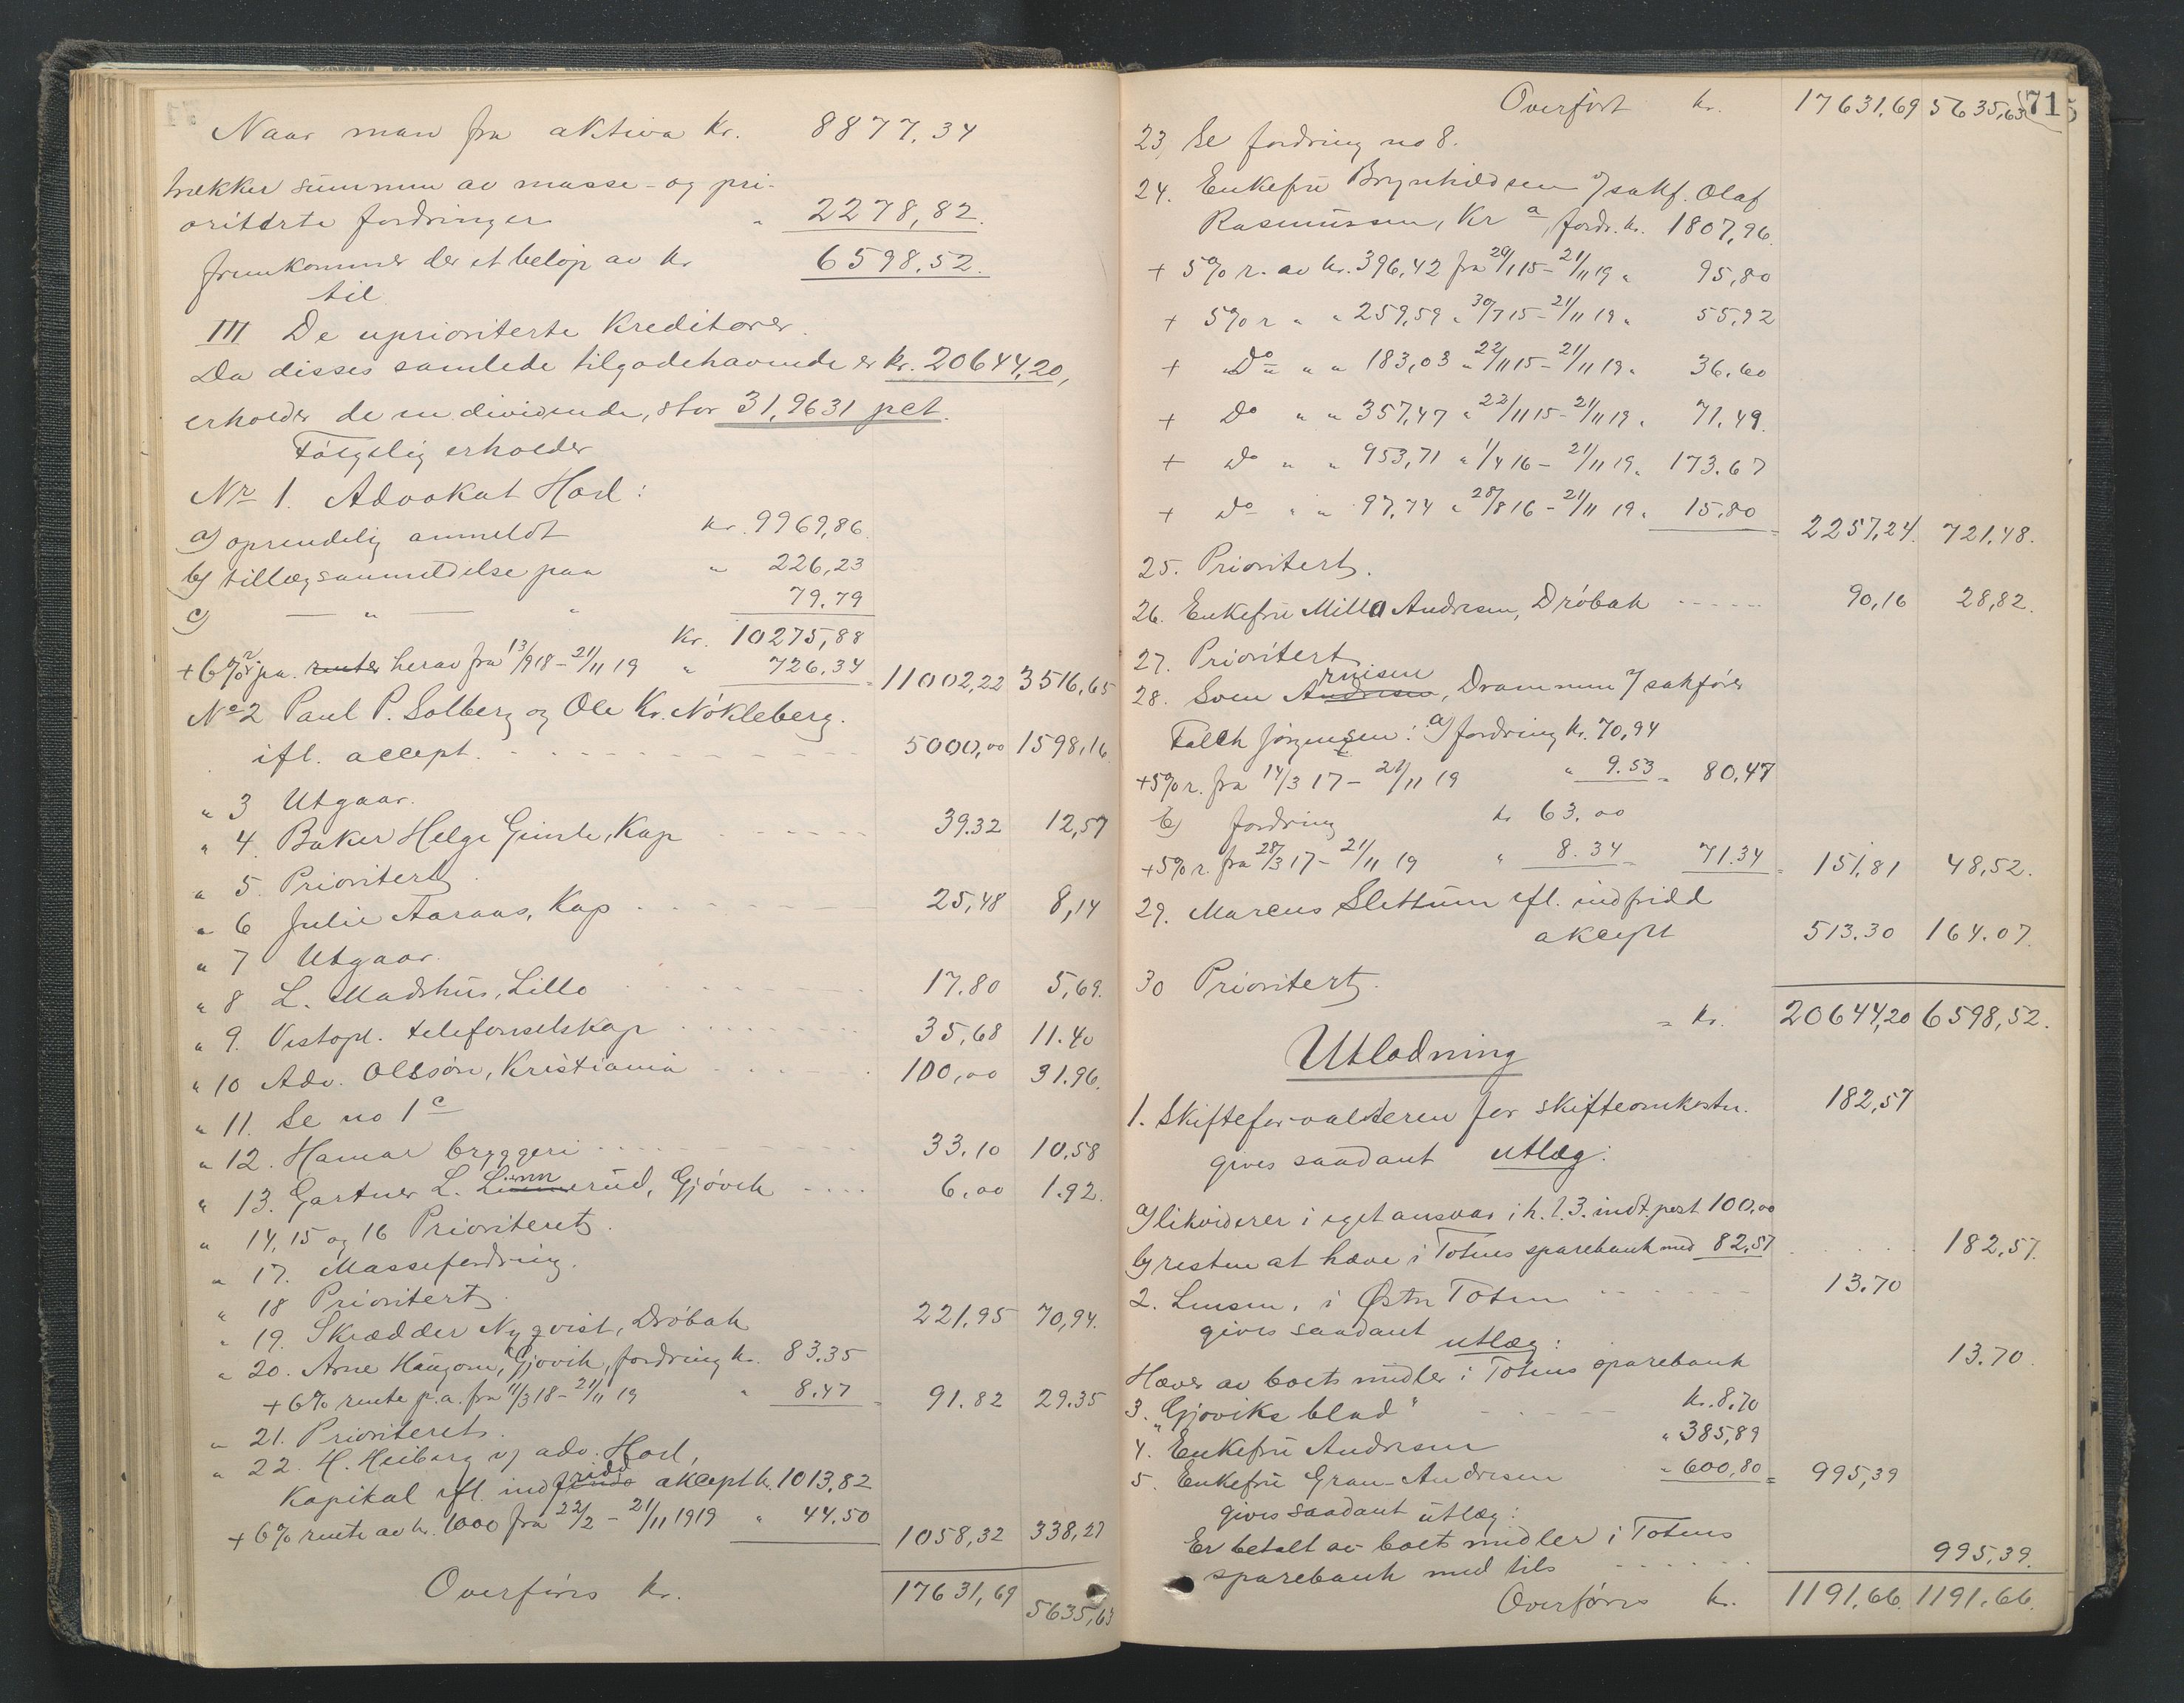 Naar man fra aktiva kr. 8877,34
trækker summen av masse- og pri-
oriterte fordringer " 2278,82.
fremkommer der et beløp av kr 6598,52.
til
III De uprioriterte kreditorer.
Da disses samlede tilgodehavende er kr. 20644,20,
erholder de en dividende, stor 31,9631 pct.
Følgelig erholder
No 1. Advokat Hoel:
a) oprindelig anmeldt kr. 9969,86
b) tillægsanmeldelse paa " 226,23
c) — " — " 79.79
Kr. 10275,88
+ 6% r. p.a. renter herav fra 13/9 18 - 21/11 19 " 726.34 = 11002,22 3516,65
No 2 Paul P. Solberg og Ole Kr. Nøkleberg.
ifl. accept. 5000,00 1598,16
" 3 Utgaar.
" 4. Baker Helge Gimle, Kap 39.32 12,57
" 5. Prioritert.
" 6 Julie Aaraas, Kap 25,48 8,14
" 7 Utgaar.
" 8 L. Madshus, Lillo 17.80 5,69.
" 9. Vestopl. telefonselskap 35,68 11.40
" 10 Adv. Olsson, Kristiania 100,00 31.96.
" 11. Se no 1c
" 12. Hamar bryggeri 33.10 10.58
" 13. Gartner L. Linnerud, Gjøvik 6,00 1.92.
" 14, 15 og 16 Prioritert.
" 17. Massefordring.
" 18 Prioritert.
" 19. Skrædder Nyqvist, Drøbak 221,95 70,94.
" 20. Arne Haugom, Gjøvik, fordring kr. 83.35
+ 6% rente p.a. fra 11/3 18 - 21/11 19 " 8.47 = 91.82 29.35
" 21. Prioritert.
" 22. H. Heiberg v/ adv. Hoel,
Kapital ifl. indfridd aksept k. 1013,82
+ 6% rente av kr. 1000 fra 22/2 - 21/11 1919 " 44.50 1058,32 338,27
Overføres kr. 17631,69 5635,63
Overført kr. 17631,69 5635,63
71
23, Se fordring no 8.
24. Enkefru Brynhildsen v/ sakf. Olaf
Rasmussen, Kr a, fordr. kr. 1807,96.
+ 5% r. av kr. 396,42 fra 20/1 15 - 21/11 19 " 95,80
+ 5% r " " 259,59 " 30/7 15 - 21/11 19 " 55,92
+ Do " " 183,03 " 22/11 15 - 21/11 19 " 36.60
+ Do " " 357,47 " 22/11 15 - 21/11 19 " 71.49.
+ Do " " 953,71 " 1/4 16 - 21/11 19 " 173.67
+ Do " " 97,74 " 28/8 16 - 21/11 19 " 15.80 = 2257,24. 721.48.
25. Prioritert.
26. Enkefru Milla Andresen, Drøbak 90,16 28,82.
27. Prioritert
rnisen
28. Sven Andresen, Drammen v/ sakfører
Falch Jørgensen: a) fordring kr. 70,94
+ 5% r. fra 14/3 17 - 21/11 19 " 9.53 = 80,47
b) fordring kr 63.00
+ 5% r. fra 28/3 17 - 21/11 19 " 8.34 = 71.34 = 151,81 48,52.
29. Marcus Slettum ifl. indfridd
aksept 513.30 164.07.
30 Prioritert.
= kr. 20644,20 6598,52.
Utlodning
1. Skifteforvalteren for skifteomkostn. 182,57
gives saadant utlæg:
a) likviderer i eget ansvar i h. t. 3. indt. post 100,00
b) resten at hæve i Totens sparebank med 82,57 182,57.
2. Lensm. i Østre Toten 13.70
gives saadant utlæg:
Hæves av boets midler i Totens sparebank 13.70
3. "Gjøviks blad" kr. 8.70
4. Enkefru Andresen " 385,89
5. Enkefru Gran-Andresen " 600,80 = 995,39
gives saadant utlæg:
Er betalt av boets midler i Totens
sparebank med tils 995,39.
Overføres kr. 1191.66. 1191.66.